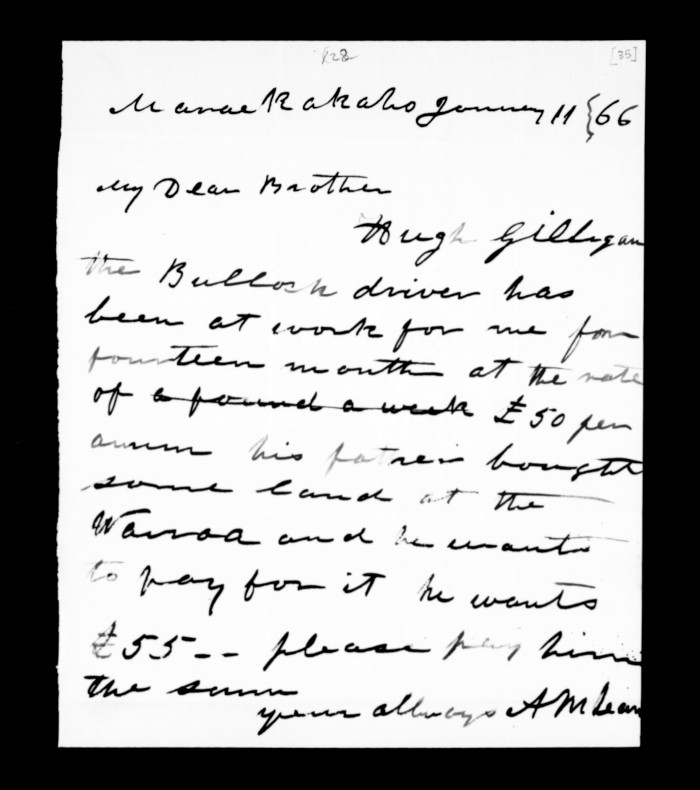 128 [35]
Maraekakaho January 11 {66
My Dear Brother
Hugh Gilligan
the Bullock driver has
been at work for me for
fourteen month at the rate
of a pound a week £50 per
annum his father bought
some land at the
Wairoa and he wants
to pay for it he wants
£55-- please pay him
the sum
your allways A McLean